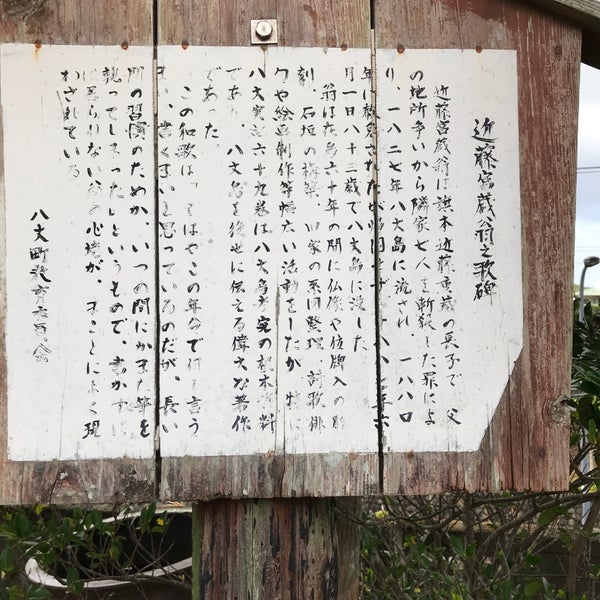 近藤富蔵翁之歌碑
近藤富蔵翁は旗本近藤重蔵の長子で、父
の地所争いから隣家七人を斬殺した罪によ
り、一八二七年八丈島に流され、一八八〇
年に赦免されたが帰国せず、一八八七年六
月一日八十三歳で八丈島に没した。
翁は在島六十年の間に仏像や位牌入の彫
刻、石垣の構築、旧家の系図整理、詩歌俳
句や絵画制作等幅広い活動をしたが、特に
八丈実記六十九巻は八丈島研究の根本資料
であり、八丈島を後世に伝える偉大な著作
であった。
この和歌は「もはやこの年令で何も言う
まい、書くまいと思っているのだが、長い
間の習慣のためか、いつの間にかまた筆を
執ってしまった」というもので、書かずに
は居られない翁の心境が、まことによく現
わされている。
八丈町教育委員会